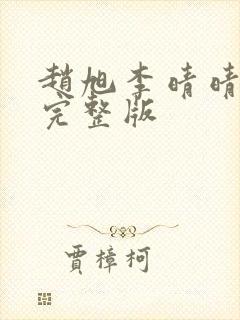 趙旭李晴晴
完整版
賈樟柯